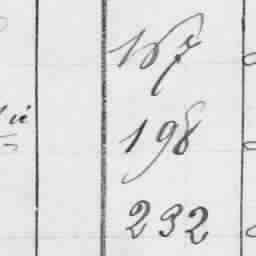 157
198
232